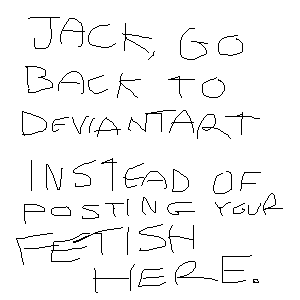 JACK, GO
BACK TO
DEVIANTART
INSTEAD OF
POSTING YOUR
FETISH
HERE.